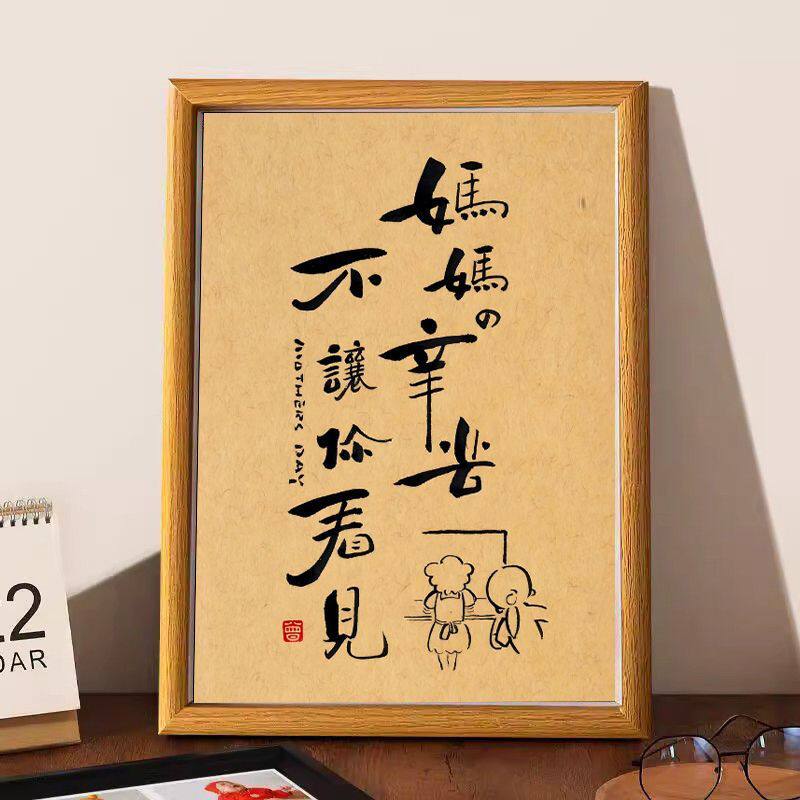 媽媽の辛苦
不讓你看見
MOTHERS DAY
曾
12
DAR